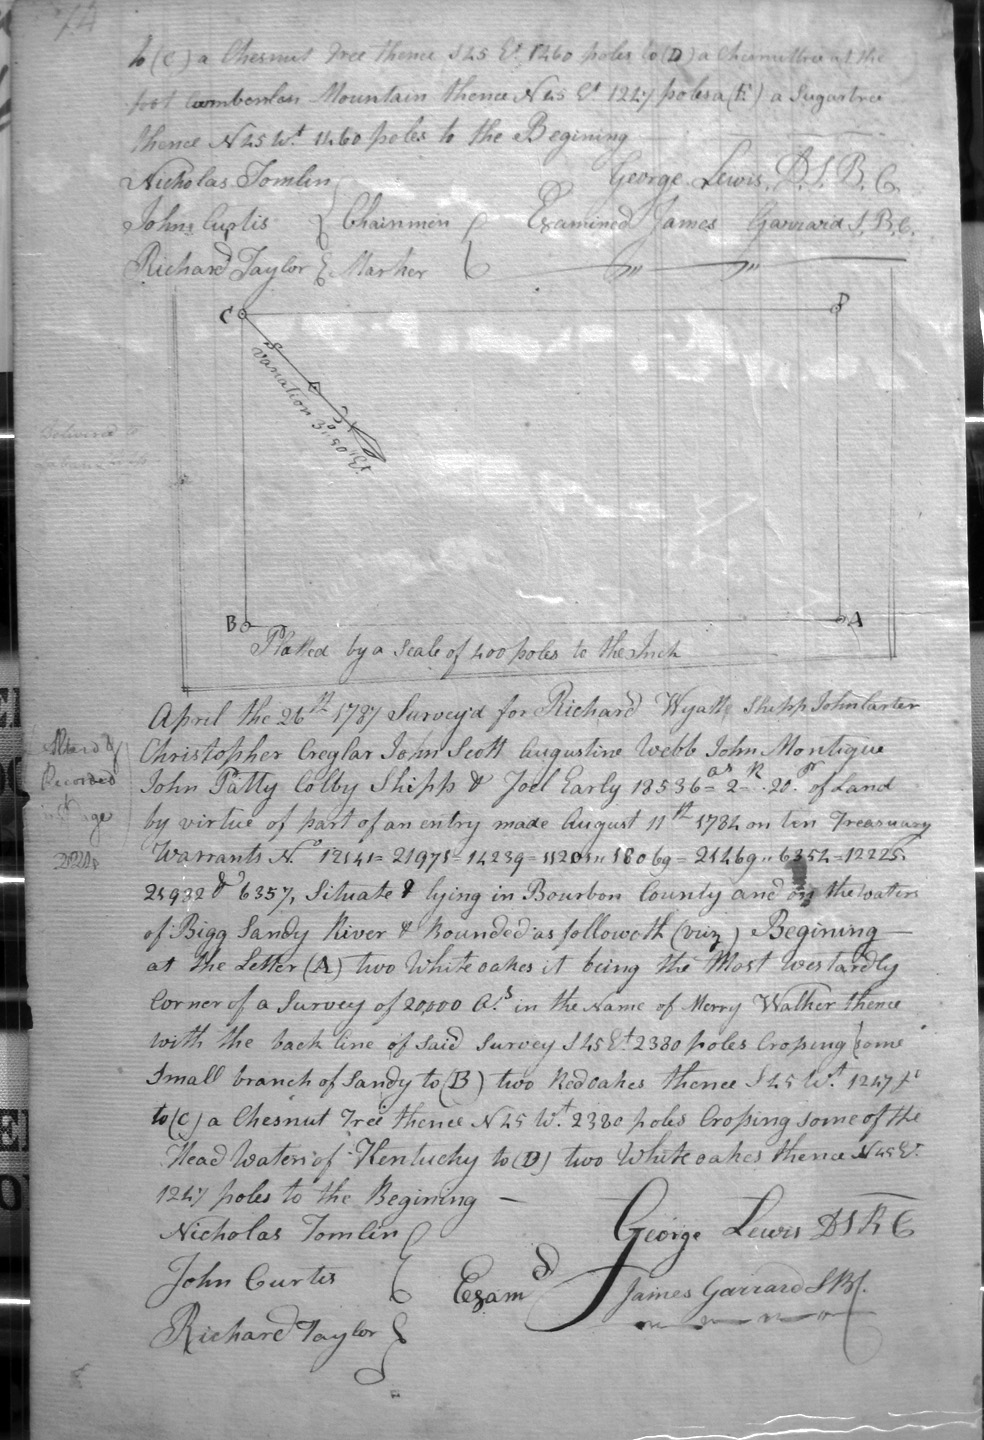 to (C) a Chesnut Tree thence S45 Et 1460 poles to (D) a Chesnuttree at the
foot Cumberlan Mountain thence N45 Et 1247 poles a (E) a Sugartree
thence N45 Wt 1460 poles to the Begining
Nicholas Tomlin George Lewis, D. S. B. C.
John Curtis } Chainmen Examined James Garrard S. B. C.
Richard Taylor } Marker
C D
Variation 3°,50'. Et
B A
Platted by a Scale of 400 poles to the Inch
April the 26th 1787 Survey'd for Richard Wyatt Shipp John Carter
Christopher Creglar John Scott Augustine Webb John Montigue
John Patty Colby Shipp & Joel Early 18536 as 2 R 20 Po of Land
by virtue of part of an entry made August 11th 1784 on ten Treasuary
Recorded
Warrants No 12141= 21975= 14239= 11201" 18069= 24469" 6354=12225
24932 & 6357, Situate & lying in Bourbon County and on the waters
of Bigg Sandy River & Bounded as followeth (viz) Begining
at the Letter (A) two White oakes it being the Most westardly
Corner of a Survey of 20,000 As. in the Name of Merry Walker thence
with the back line of said Survey S45 Et 2380 poles Crossing some
Small branch of Sandy to (B) two Red oakes thence S45 Wt. 1247 ps
to (C) a Chesnut Tree thence N45 Wt. 2380 poles Crossing some of the
Head Waters of Kentucky to (D) two White oakes thence N45 Et.
1247 poles to the Begining
Nicholas Tomlin George Lewis DSBC
John Curtis Examd James Garrard SBC.
Richard Taylor